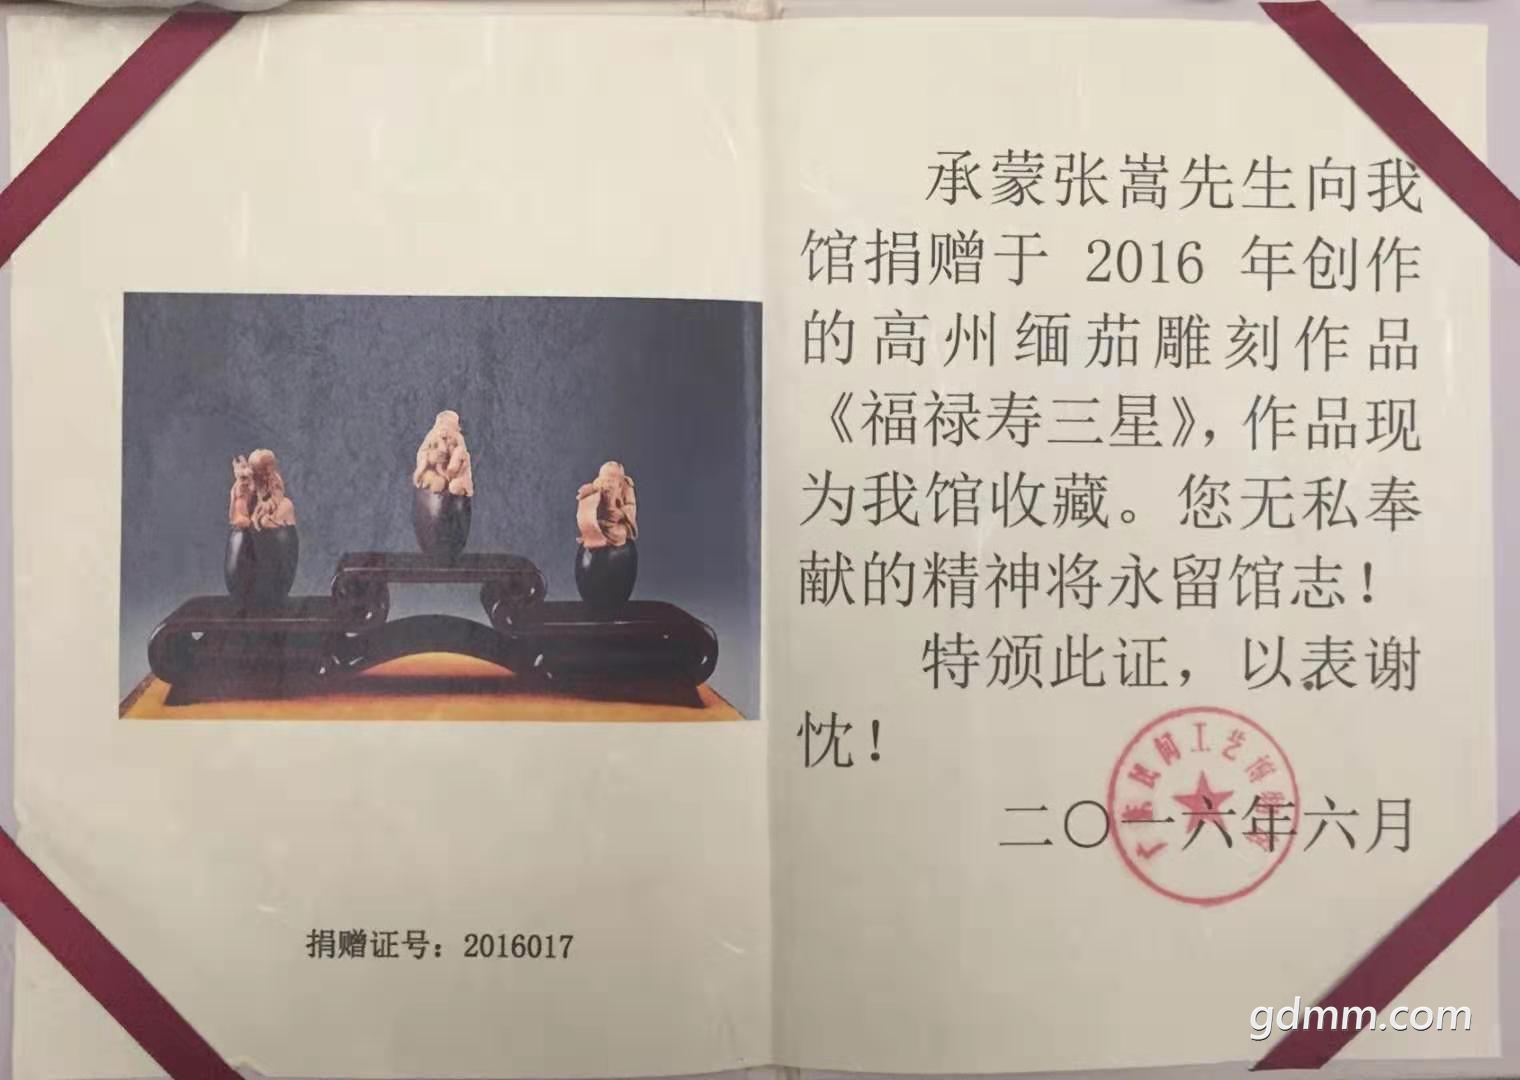 捐赠证号：2016017
承蒙张嵩先生向我
馆捐赠于 2016 年创作
的高州缅茄雕刻作品
《福禄寿三星》，作品现
为我馆收藏。您无私奉
献的精神将永留馆志！
特颁此证，以表谢
忱！
广东民间工艺博物馆
二〇一六年六月
gdmm.com